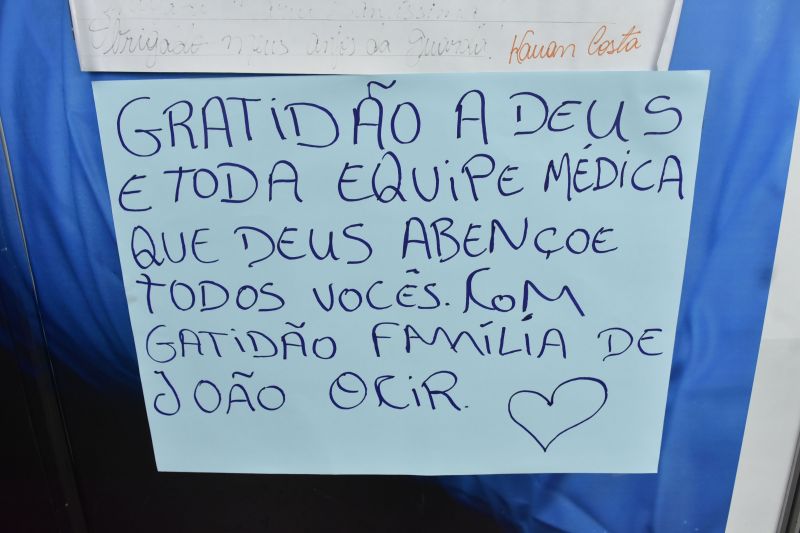 Obrigado meus anos da guarda! Kauan Costa
GRATIDÃO A DEUS
E TODA EQUIPE MÉDICA
QUE DEUS ABENÇOE
TODOS VOCÊS. COM
GATIDÃO FAMÍLIA DE
JOÃO OCIR.